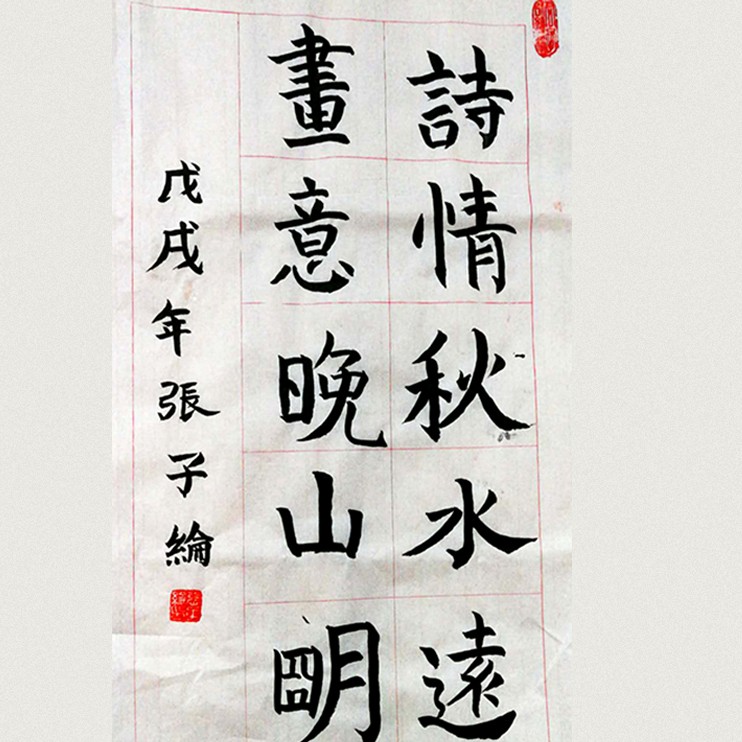 詩情秋水遠
畫意晚山朙
戊戌年張子綸